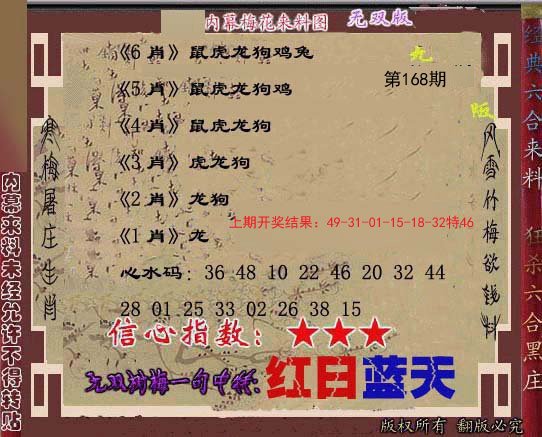 内幕梅花来料图 无双版
《6 肖》鼠虎龙狗鸡兔
《5 肖》鼠虎龙狗鸡
《4 肖》鼠虎龙狗
《3 肖》虎龙狗
《2 肖》龙狗
《1 肖》龙
第168期
上期开奖结果：49-31-01-15-18-32特46
心水码： 36 48 10 22 46 20 32 44
28 01 25 33 02 26 38 15
信心指数：★★★
无双树梅一句中特：红日蓝天
版权所有 翻版必究
寒梅屠庄生肖
风雪竹梅欲钱料
内幕来料未经允许不得转贴
经典六合来料
狂杀六合黑庄